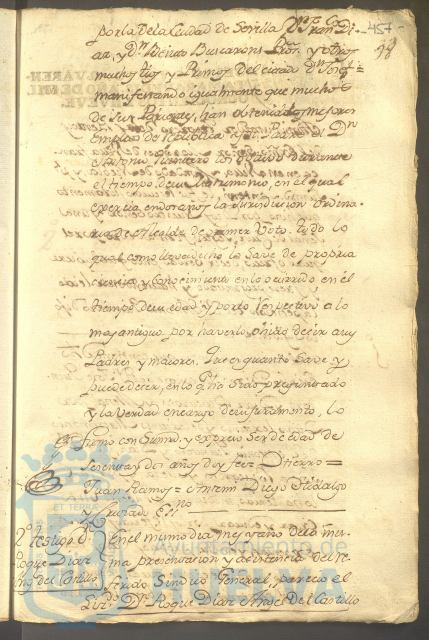 por la de la Ciudad de Sevilla Dn. Fran.co Di-
az, y Dn. Vicente Buscarons Pbro. y otros
muchos tios y Primos del citado Dn. Josef =
manifestando igualmente que muchos
de sus Parientes han obtenido los mejores
empleos de Republica y su Padre Dn.
Antonio Quintero los obtuvo durante
el tiempo de su Matrimonio, en el qual
exercia en dos años la Jurisdicion Ordina-
ria de Alcalde de primer Voto. Todo lo
qual como lleva dicho lo save de propria
ciencia y conocimiento en lo ocurrido en el
tiempo de su edad y por lo respectivo a lo
mas antiguo por haverlo oido decir a sus
Padres y maiores. Que es quanto save y
puede decir, en lo q.e ha sido preguntado
y la verdad en cargo de su juramento, lo
firmo con su mrd. y expresó ser de edad de
sesenta y dos años doy fee = Otierro =
Juan Ramos = Antemi Diego Hidalgo
y Hurtado Es.no
2.º testigo D.
Roque Diaz
Ang.l del Castillo
En el mismo dia mes y año de la mis-
ma presentacion y asistencia del re-
ferido Sindico General, parecio el
Liz.do Dn. Roque Diaz Angel del Castillo
457
98
ET TERRÆ
Ayuntamiento de
HUELVA